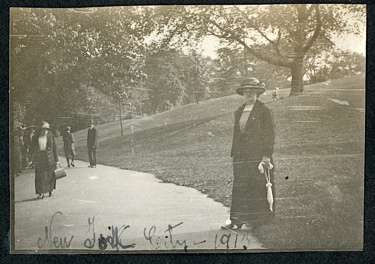 New York City - 1915